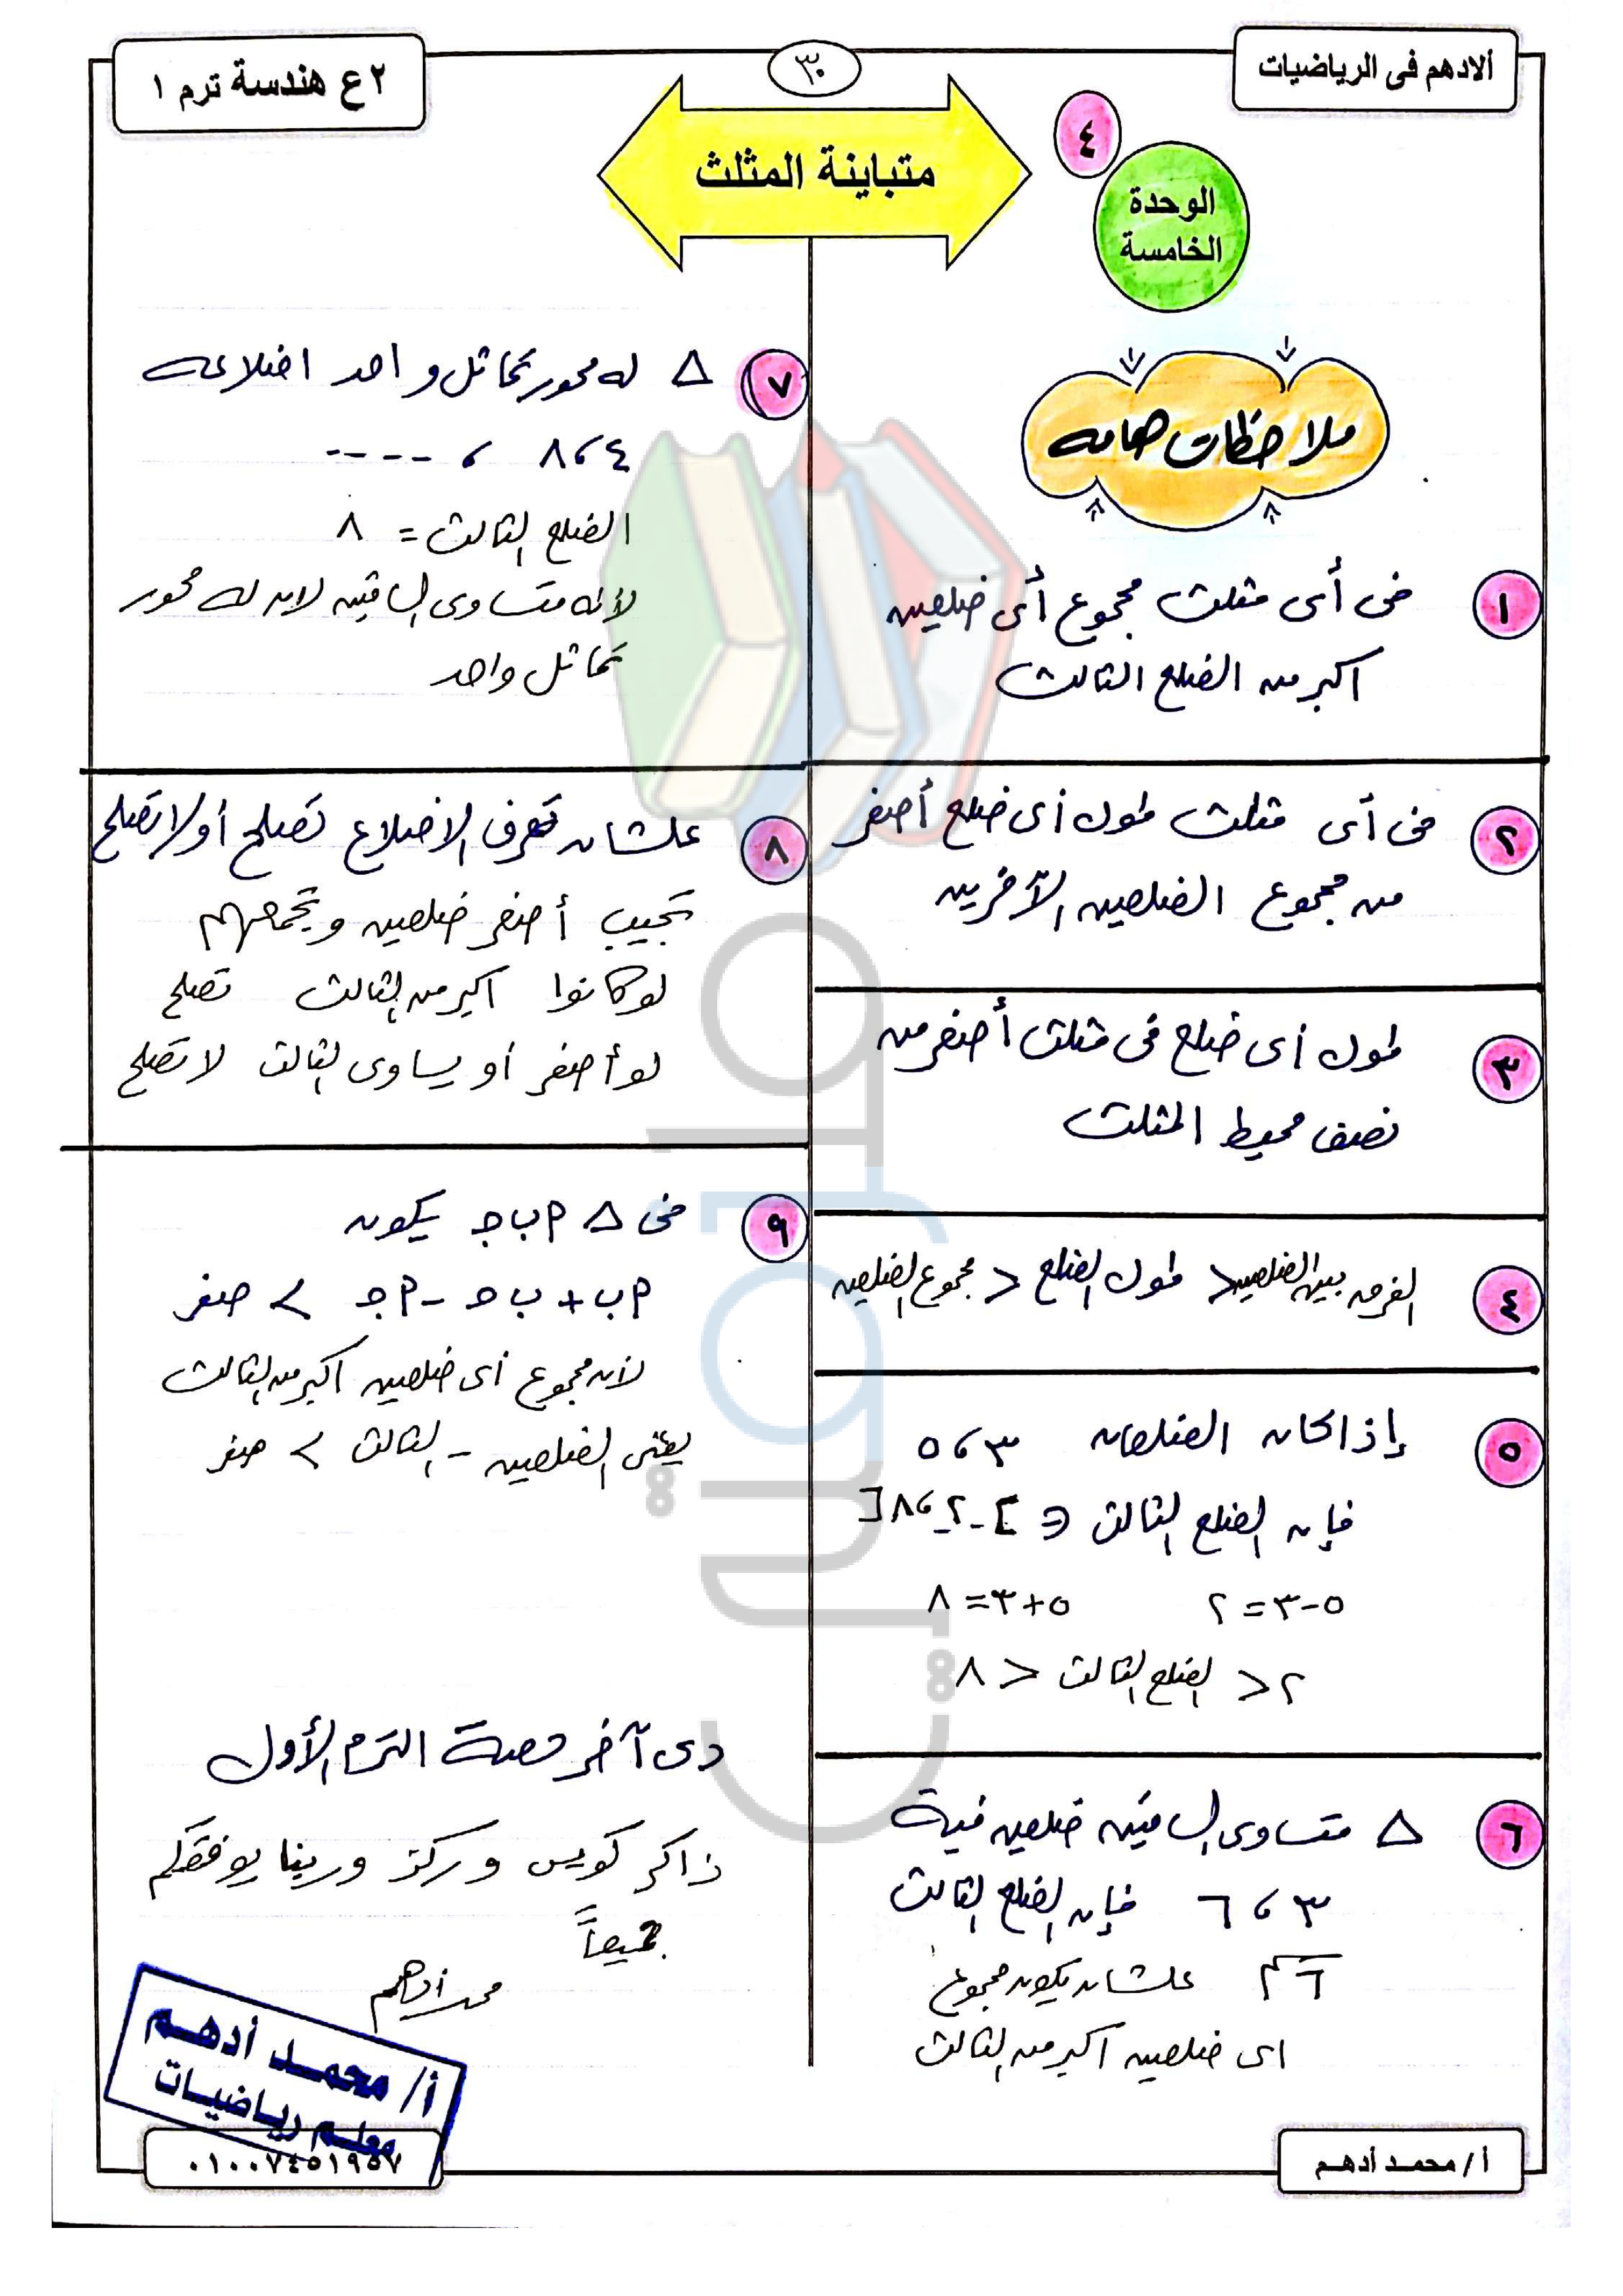 ألادهم فى الرياضيات
٣٠
٢ ع هندسة ترم ١
متباينة المثلث
٤
الوحدة
الخامسة
ملاحظات هامه
١ فى أى مثلث مجموع أى ضلعين
اكبر من الضلع الثالث
٢ فى أى مثلث طول أى ضلع أصغر
من مجموع الضلعين الآخرين
٣ طول أى ضلع فى مثلث أصغر من
نصف محيط المثلث
٤ الفرق بين الضلعين < طول الضلع < مجموع الضلعين
٥ إذا كان الضلعان ٣ ، ٥
فإن الضلع الثالث ∈ ]-٢ ، ٨[
٥-٣=٢ ٥+٣=٨
٢ < الضلع الثالث < ٨
٦ △ متساوى الساقين ضلعين فية
٣ ، ٦ فإن الضلع الثالث
٦سم علشان يكون مجموع
اى ضلعين اكبر من الثالث
٧ △ له محور تماثل واحد اضلاعه
٤ ، ٨ ، ----
الضلع الثالث = ٨
لأنه متساوى الساقين لان له محور
تماثل واحد
٨ علشان تعرف الاضلاع تصلح أو لا تصلح
تجيب أصغر ضلعين وتجمعهم
لو كانوا اكبر من الثالث تصلح
لو أصغر أو يساوى الثالث لا تصلح
٩ فى △ ا ب جـ يكون
ا ب + ب جـ - ا جـ > صفر
لأن مجموع أى ضلعين اكبر من الثالث
يعنى الضلعين - الثالث > صفر
دى آخر حصة الترم الأول
ذاكر كويس وركز وربنا يوفقكم
جميعاً
محمد أدهم
أ/ محمد أدهم
معلم رياضيات
٠١٠٠٧٤٥١٩٥٧
أ/ محمد أدهم